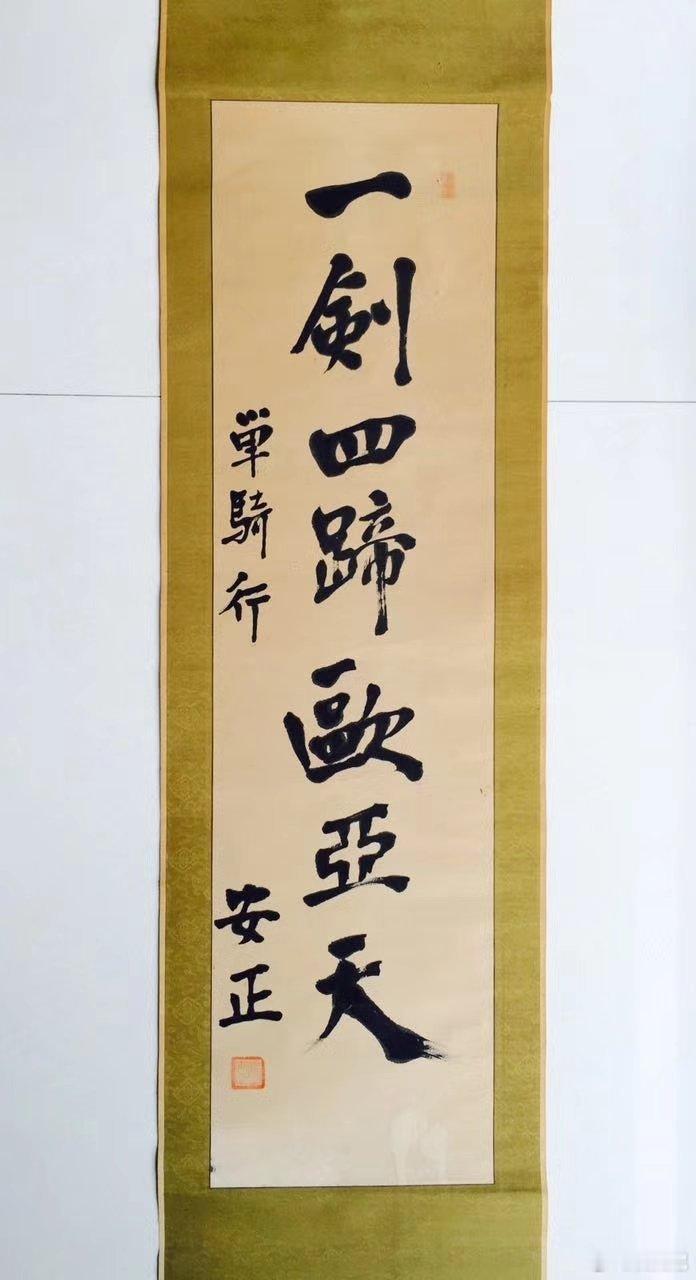 一剣四蹄歐亞天
単騎行
安正